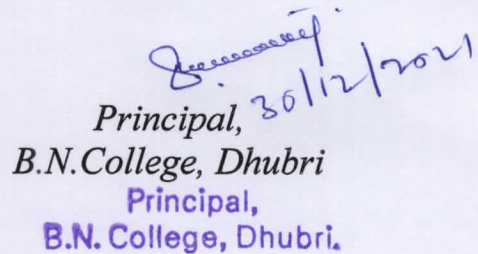 30/12/2021
Principal,
B.N.College, Dhubri
Principal,
B.N. College, Dhubri.